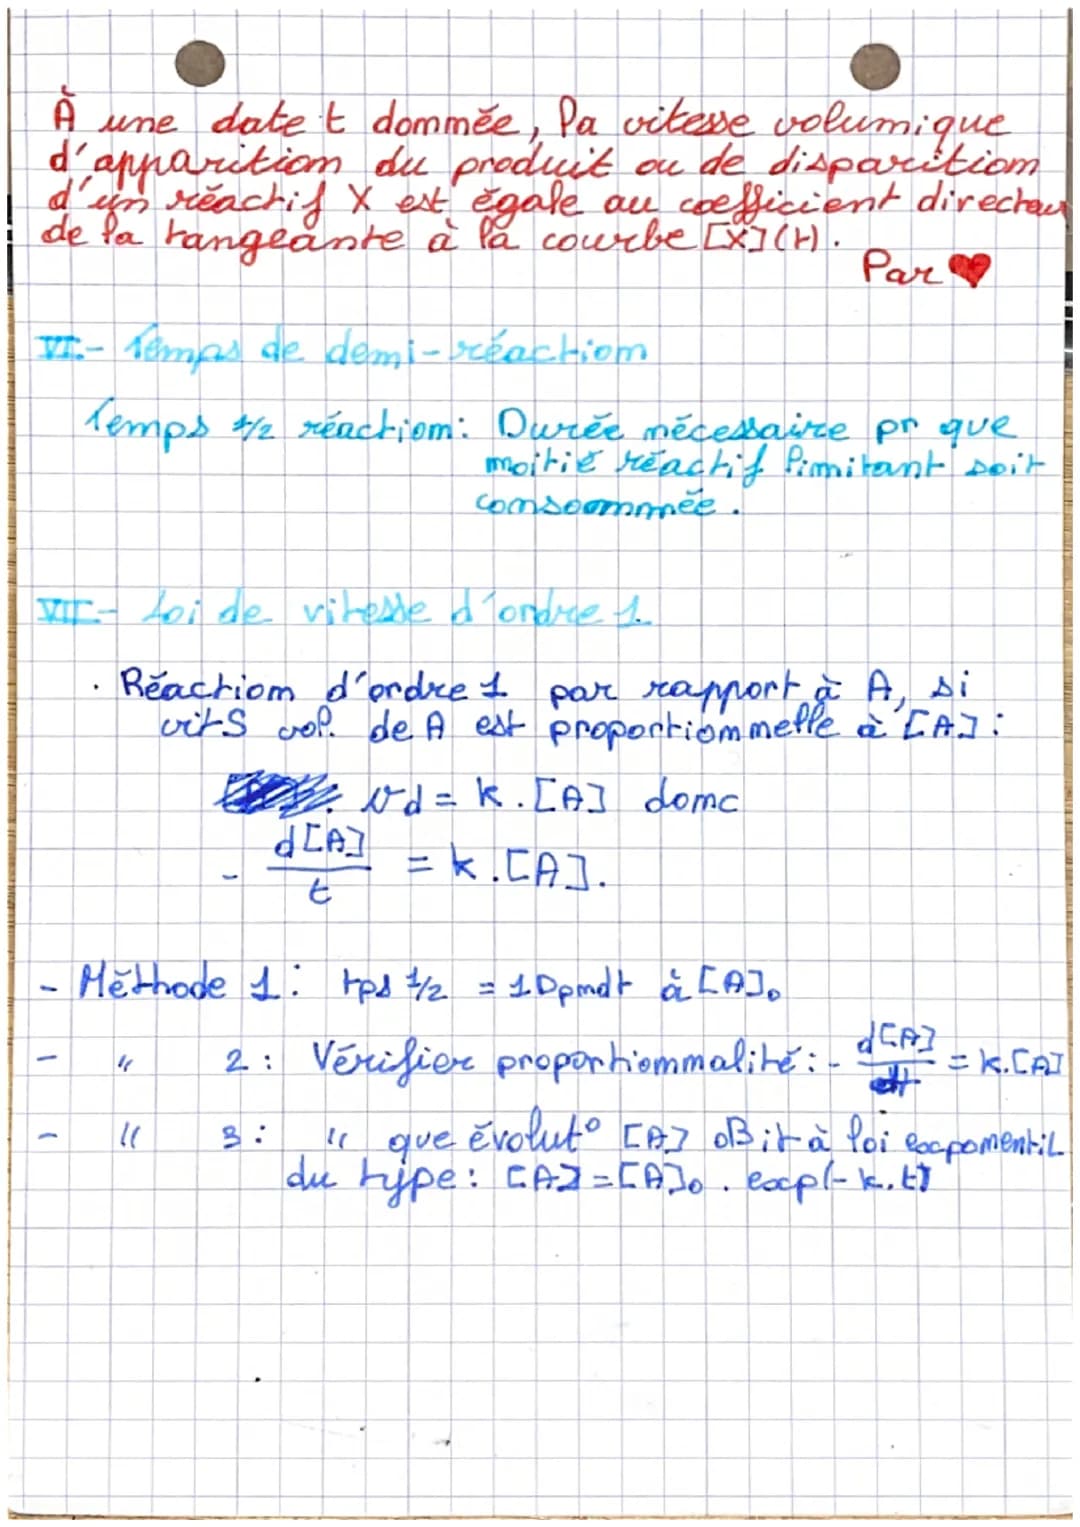 À une date t donnée, la vitesse volumique
d'apparition du produit ou de disparition
d'un réactif X est égale au coefficient directeur
de la tangeante à la courbe [X](t).
Par ♥
VI.- Temps de demi-réaction
Temps 1/2 réaction: Durée nécessaire pr que
moitié réactif limitant soit
consommée.
VII.- Loi de vitesse d'ordre 1
. Réaction d'ordre 1 par rapport à A, si
vitS vol. de A est proportionnelle à [A]:
vd = k.[A] donc
- d[A]/t = k.[A].
- Méthode 1: tps 1/2 = 1Dpmdt à [A]₀
- " 2: Vérifier proportionnalité: - d[A]/dt = k.[A]
- " 3: " que évolut° [A] oBit à loi exponentiL
du type: [A]=[A]₀. exp(-k.t)